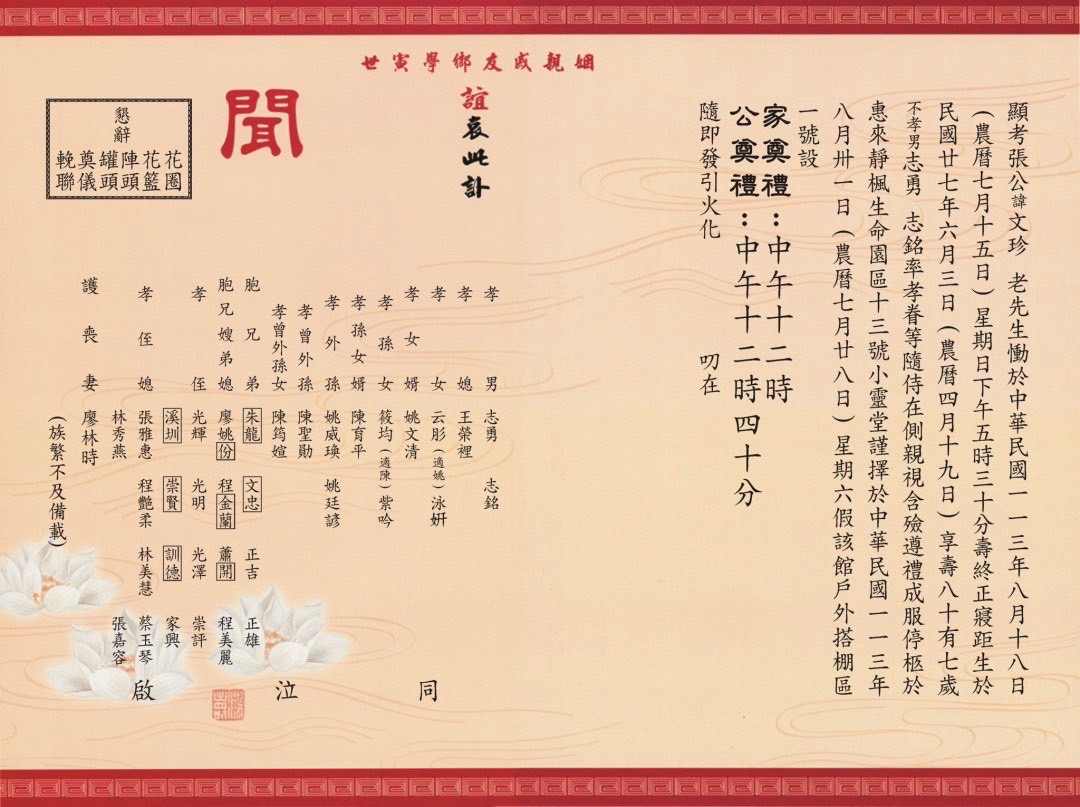 顯考張公諱文珍 老先生慟於中華民國一一三年八月十八日
(農曆七月十五日)星期日下午五時三十分壽終正寢距生於
民國廿七年六月三日(農曆四月十九日)享壽八十有七歲
不孝男志勇 志銘率孝眷等隨侍在側親視含殮遵禮成服停柩於
惠來靜楓生命園區十三號小靈堂謹擇於中華民國一一三年
八月卅一日(農曆七月廿八日)星期六假該館戶外搭棚區
一號設
家奠禮:中午十二時
公奠禮:中午十二時四十分
隨即發引火化 叨在
姻親戚友鄉學寅世
誼哀此訃
聞
懇辭
花圈
花籃
陣頭
罐頭
奠儀
輓聯
孝男 志勇 志銘
孝媳 王榮裡
孝女 云肜(適姚)泳妍
孝女婿 姚文清
孝孫女 筱均(適陳)紫吟
孝孫女婿 陳育平
孝外孫 姚威瑍 姚廷諺
孝曾外孫 陳聖勛
孝曾外孫女 陳筠媗
胞兄弟 朱龍 文忠 正吉 正雄
胞兄嫂弟媳 廖姚份 程金蘭 蕭開 程美麗
孝侄 光輝 光明 光澤 崇評
溪圳 崇賢 訓德 家興
孝侄媳 張雅惠 程艷柔 林美慧 蔡玉琴
林秀燕 張嘉容
護喪妻 廖林時
(族繁不及備載)
同泣啟